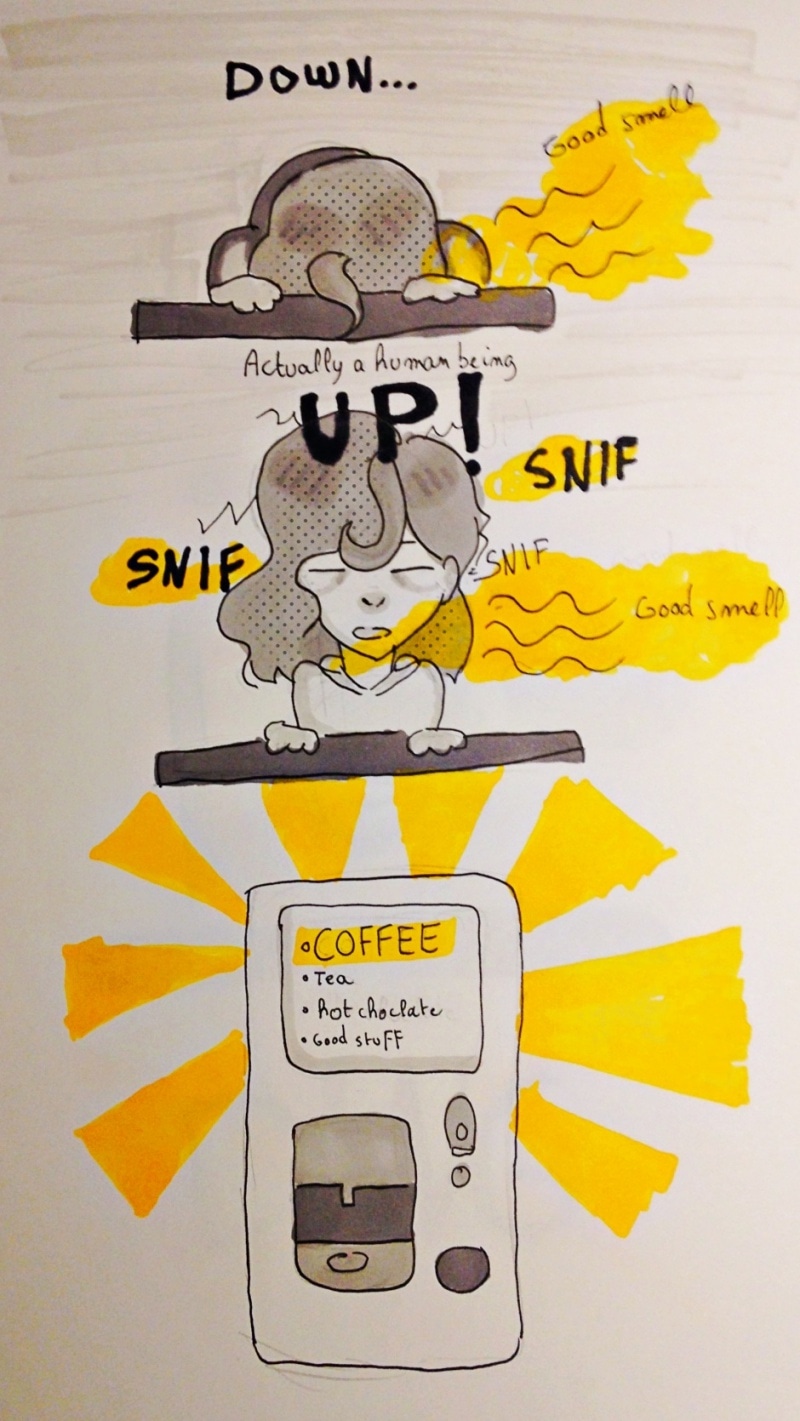 DOWN...
Good smell
Actually a human being
UP!
SNIF
SNIF
SNIF
Good smell
• COFFEE
• Tea
• hot choclate
• Good stuff